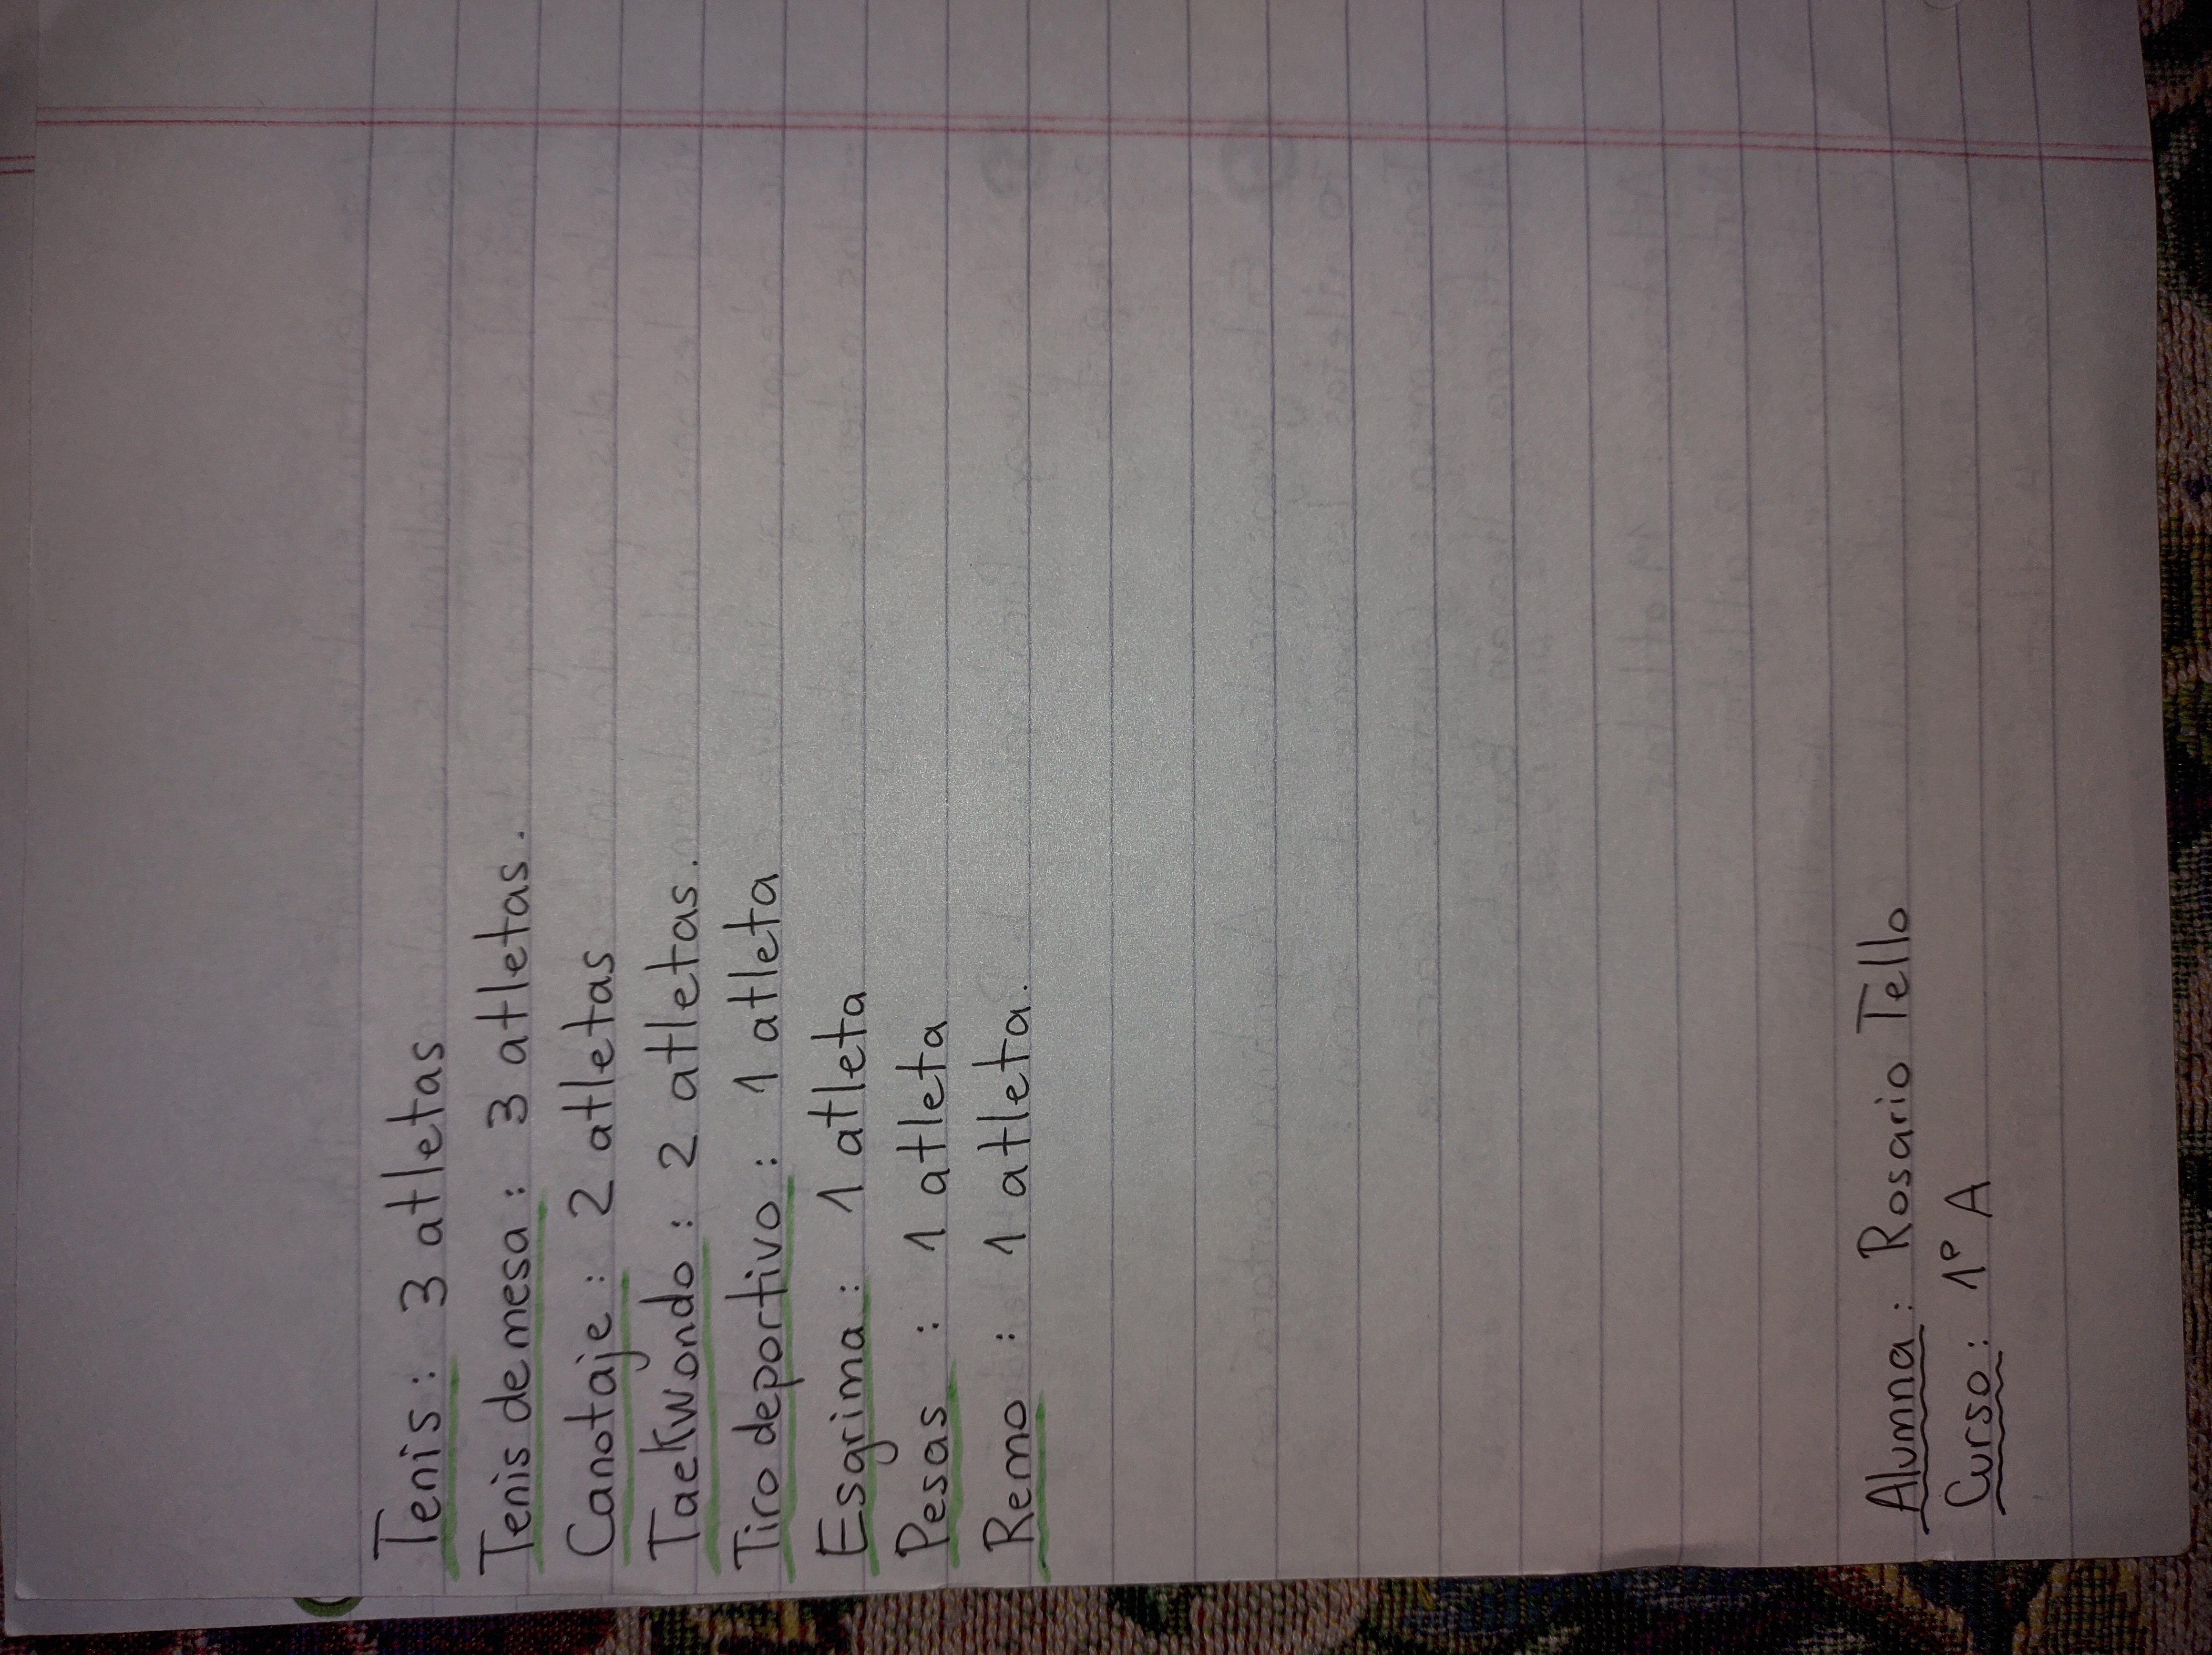 Tenis: 3 atletas
Tenis de mesa: 3 atletas.
Canotaje: 2 atletas
Taekwondo: 2 atletas.
Tiro deportivo: 1 atleta
Esgrima: 1 atleta
Pesas: 1 atleta
Remo: 1 atleta.
Alumna: Rosario Tello
Curso: 1º A